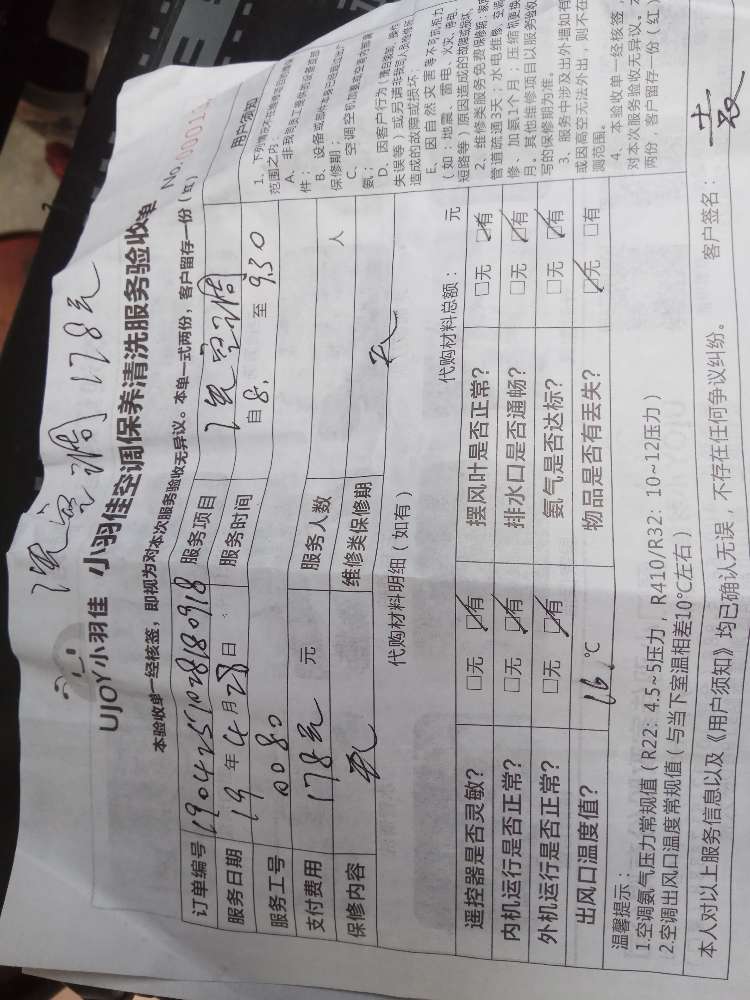 洗空调 178元
UJOY小羽佳 小羽佳空调保养清洗服务验收单
No.00001
本验收单一经核签，即视为对本次服务验收无异议。本单一式两份，客户留存一份（红）
订单编号 1904251028180918 服务项目 洗空调
服务日期 19年4月28日 服务时间 自8. 至9.30
服务工号 0080
支付费用 178元 元 服务人数 人
保修内容 无 维修类保修期 无
代购材料明细（如有） 代购材料总额： 元
遥控器是否灵敏？ □无 □有 摆风叶是否正常？ □无 □有
内机运行是否正常？ □无 □有 排水口是否通畅？ □无 □有
外机运行是否正常？ □无 □有 氨气是否达标？ □无 □有
出风口温度值？ 16 ℃ 物品是否有丢失？ □无 □有
温馨提示：
1.空调氨气压力常规值（R22：4.5~5压力，R410/R32：10~12压力）
2.空调出风口温度常规值（与当下室温相差10℃左右）
本人对以上服务信息以及《用户须知》均已确认无误，不存在任何争议纠纷。 客户签名：
用户须知
范围之内。
件；
保修期；
氨；
D、因客户行为
失误等）或另请非我司人员维修
造成的故障或损坏
E、因自然灾害等不可抗力
（如：地震、雷电、火灾、
短路等）原因造成的故障或损坏。
2、维修类服务免费保修期：
管道疏通3天；水电维修、空
修、加氨1个月；压缩
月。其他维修项目以服务验收
写的保修期为准。
3、服务中涉及出外墙如有
或因高空无法外出，则不在
测范围。
4、本验收单一经核签，
对本次服务验收无异议。本
两份，客户留存一份（红）